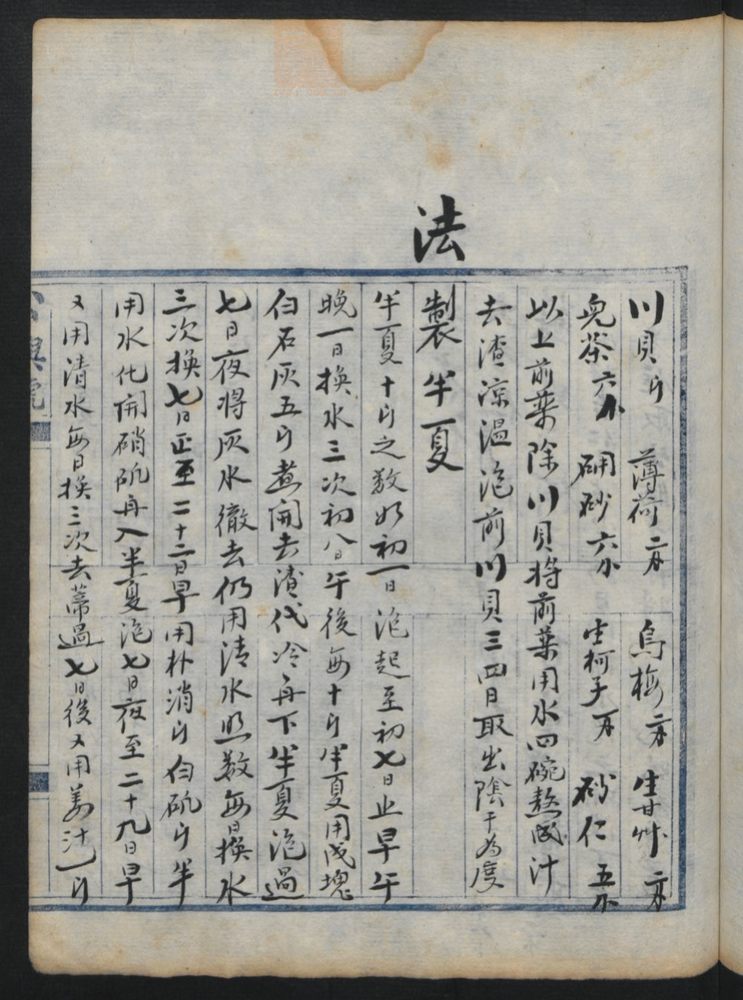 法
川貝 薄荷 烏梅 生甘艸
兒茶 硼砂 生柯子 砂仁 五
以上前藥除川貝將前藥用水四碗熬成汁
去渣涼溫泡前川貝三四日取出陰干為度
製半夏
半夏十斤之數如初一日泡起至初七日止早午
晚一日換水三次初八日午後每十斤半夏用成塊
白石灰五斤煮開去渣代冷再下半夏泡過
七日夜將灰水徹去仍用清水照數每日換水
三次換七日止至二十二日早用朴消斤白矾斤半
用水化開硝矾再入半夏泡七日夜至二十九日早
又用清水每日換三次去蒂過七日後又用姜汁一斤